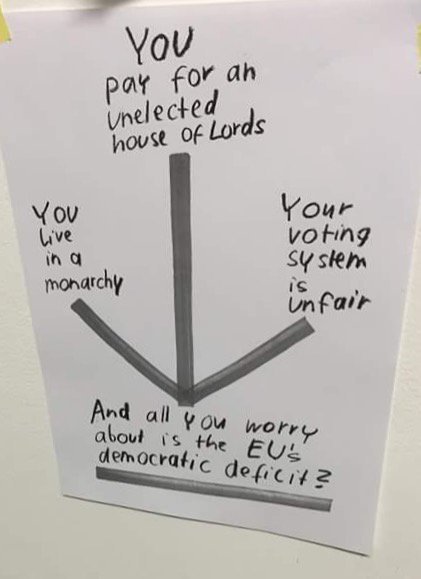 You
pay for an
unelected
house of Lords
You
live
in a
monarchy
Your
voting
system
is
unfair
And all you worry
about is the EU's
democratic deficit?